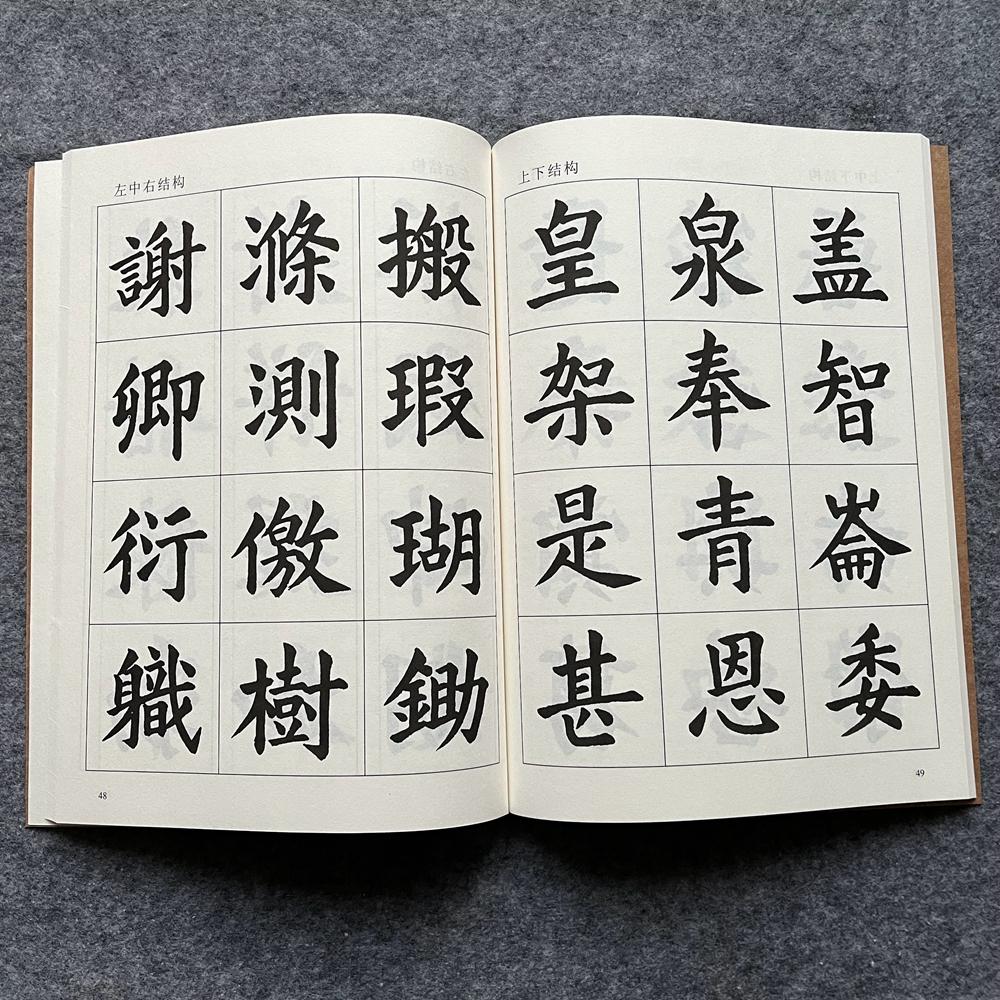 左中右结构
謝滌搬
卿測瑕
衍儌瑚
職樹鋤
48
上下结构
皇泉盖
架奉智
是青崙
甚恩委
49